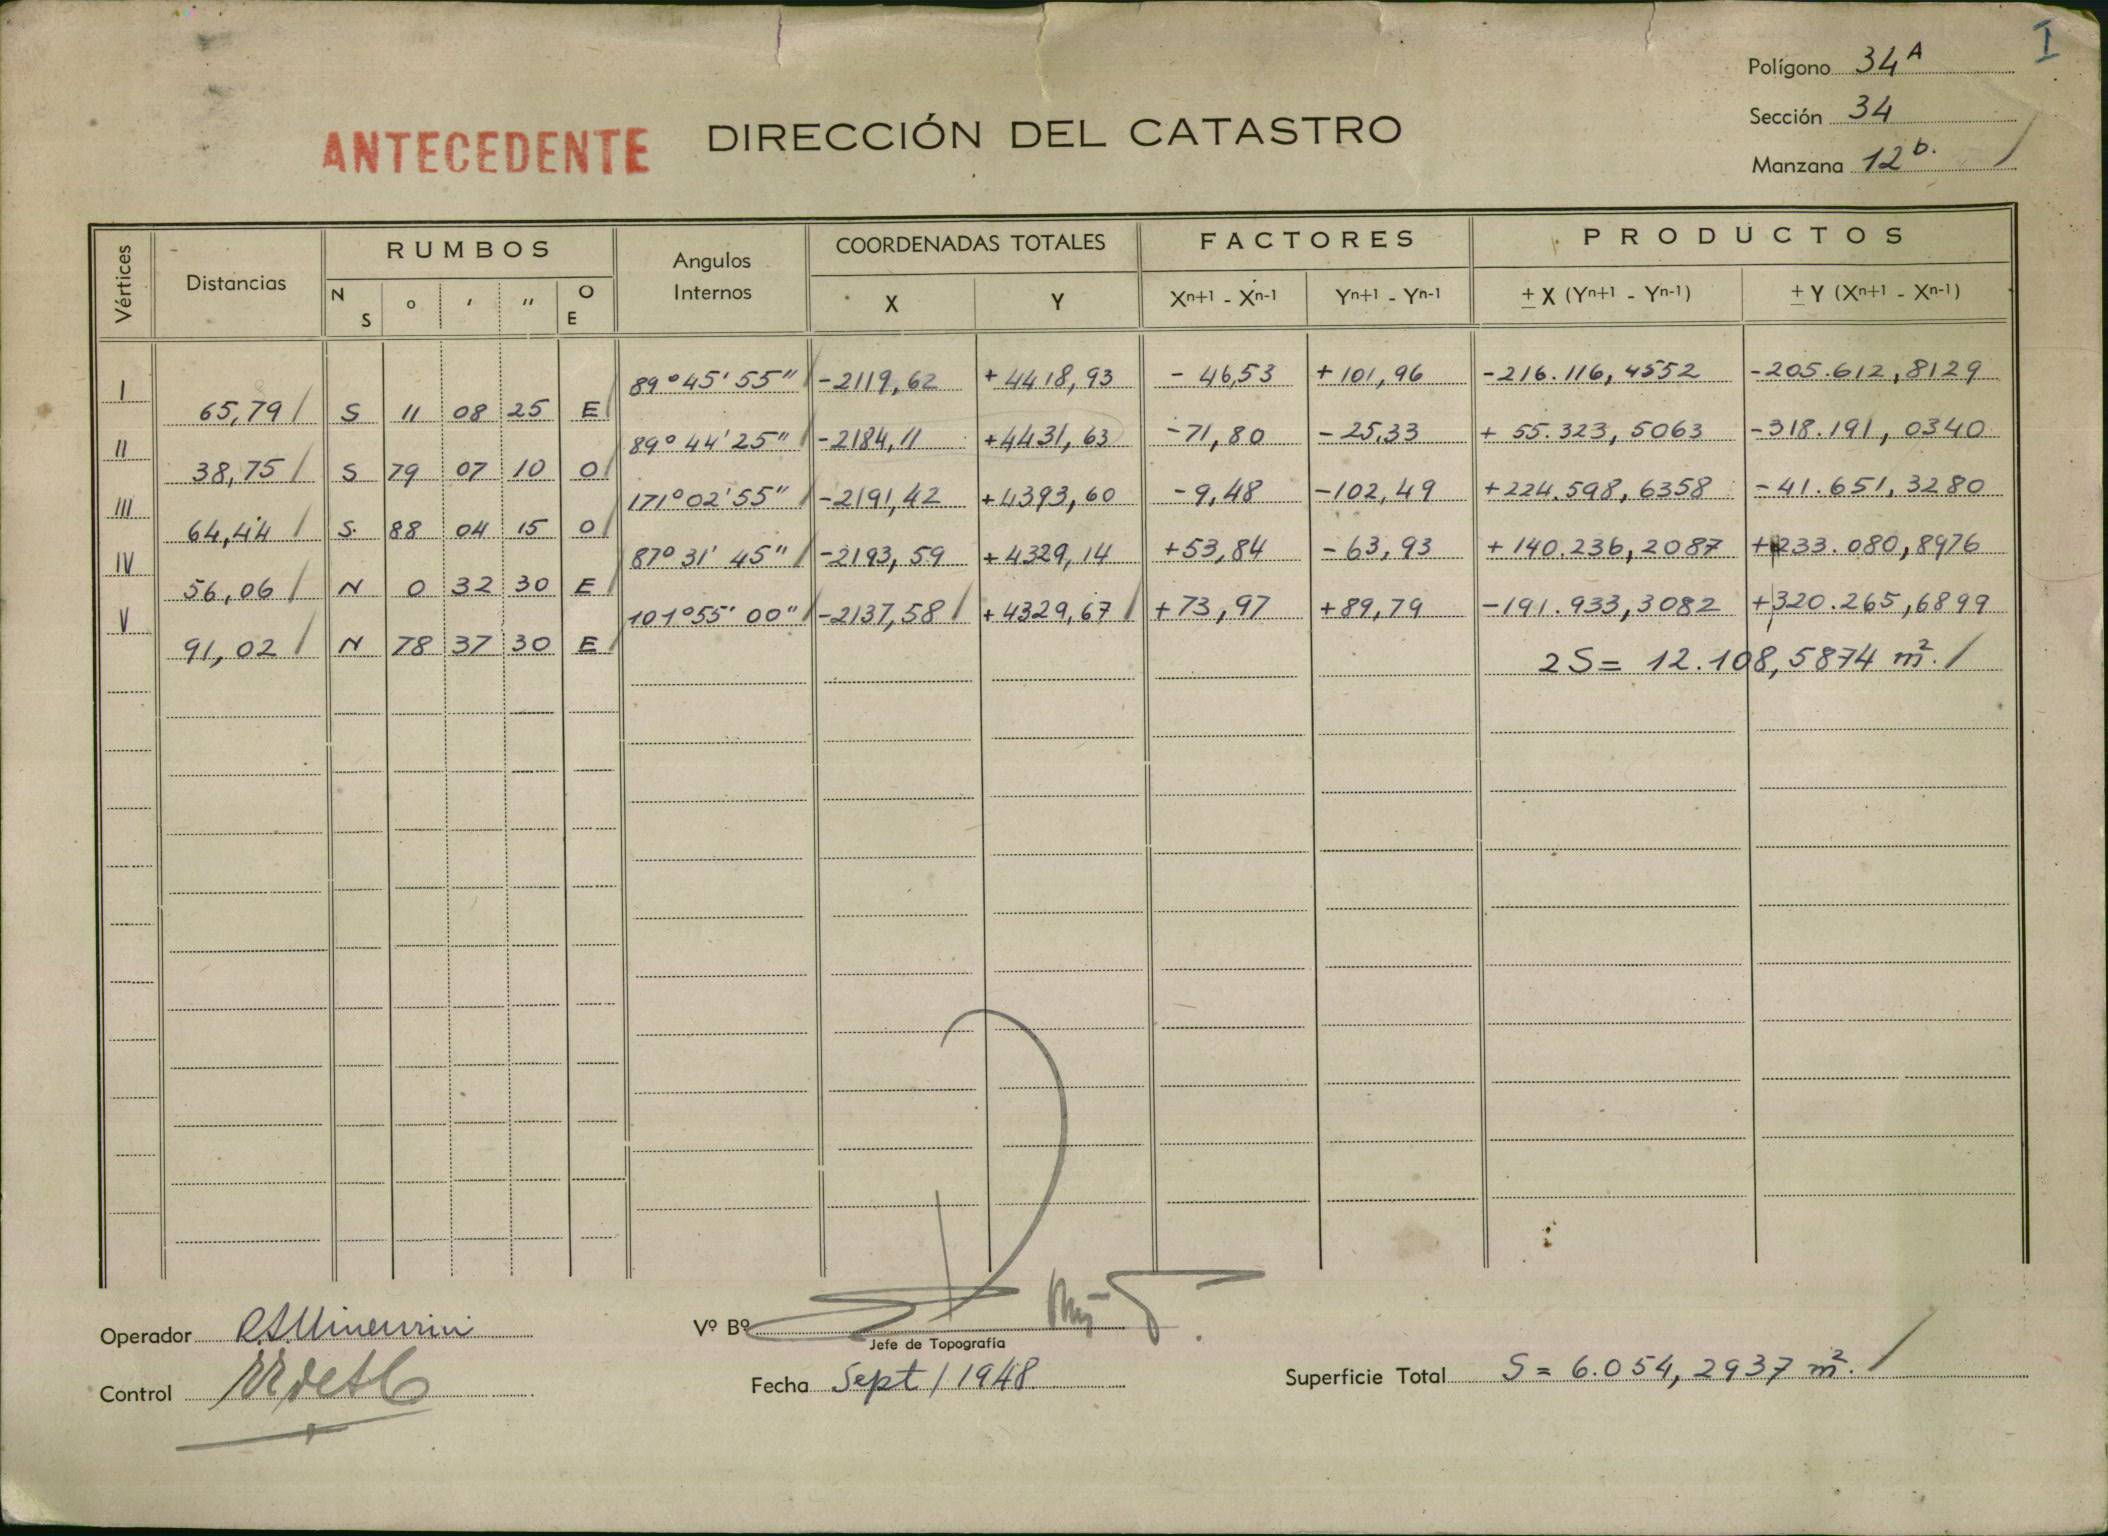 I
Polígono 34 A
Sección 34
Manzana 12 b.
ANTECEDENTE DIRECCIÓN DEL CATASTRO
Vértices Distancias RUMBOS Angulos Internos COORDENADAS TOTALES FACTORES PRODUCTOS
N S ° ' " O E X Y Xn+1 - Xn-1 Yn+1 - Yn-1 ± X (Yn+1 - Yn-1) ± Y (Xn+1 - Xn-1)
I 89° 45' 55" -2119,62 +4418,93 -46,53 +101,96 -216.116,4552 -205.612,8129
65,79 S 11 08 25 E
II 89° 44' 25" -2184,11 +4431,63 -71,80 -25,33 +55.323,5063 -318.191,0340
38,75 S 79 07 10 O
III 171° 02' 55" -2191,42 +4393,60 -9,48 -102,49 +224.598,6358 -41.651,3280
64,44 S. 88 04 15 O
IV 87° 31' 45" -2193,59 +4329,14 +53,84 -63,93 +140.236,2087 +233.080,8976
56,06 N 0 32 30 E
V 101° 55' 00" -2137,58 +4329,67 +73,97 +89,79 -191.933,3082 +320.265,6899
91,02 N 78 37 30 E
2S = 12.108,5874 m².
Operador
Vº Bº
Jefe de Topografía
Control
Fecha Sept / 1948
Superficie Total S = 6.054,2937 m².